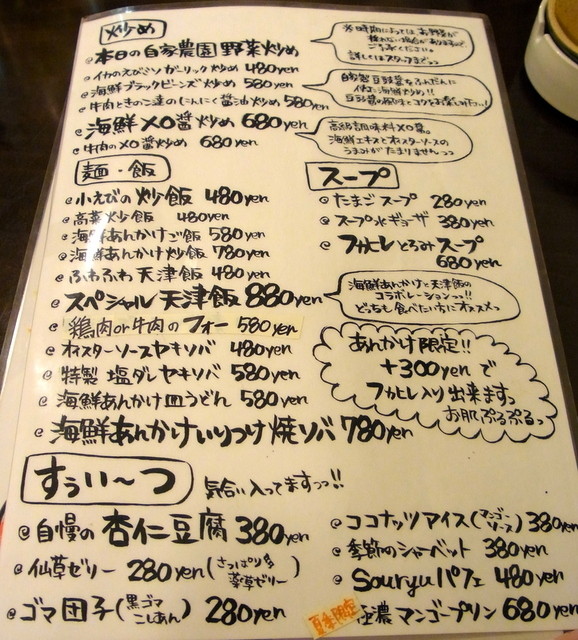 炒め
本日の自家農園野菜炒め
イカのえびミソガーリック炒め 480yen
海鮮ブラックビーンズ炒め 580yen
牛肉ときのこ達のにんにく醤油炒め 580yen
海鮮XO醤炒め 680yen
牛肉のXO醤炒め 680yen
※時期によっては、お野菜が
ご了承ください。
詳しくはスタッフまでっっ
自家製豆豉醤をふんだんに
海鮮炒め!!
高級調味料XO醤。
海鮮エキスとオイスターソースの
うまみがたまりませんっっ
麺・飯
小えびの炒飯 480yen
高菜炒飯 480yen
海鮮あんかけご飯 580yen
海鮮あんかけ炒飯 780yen
ふわふわ天津飯 480yen
スペシャル天津飯 880yen
鶏肉or牛肉のフォー 580yen
オイスターソースヤキソバ 480yen
特製 塩ダレヤキソバ 580yen
海鮮あんかけ皿うどん 580yen
海鮮あんかけいりつけ焼ソバ 780yen
スープ
たまごスープ 280yen
スープ水ギョーザ 380yen
フカヒレとろみスープ
680yen
海鮮あんかけと天津飯の
コラボレーションっっ!!
どっちも食べたい方にオススメっ
あんかけ限定!!
+300yenで
フカヒレ入り出来ますっ
お肌ぷるぷるっ
すうぃ〜つ
気合い入ってますっっ!!
自慢の杏仁豆腐 380yen
仙草ゼリー 280yen(さっぱり系薬草ゼリー)
ゴマ団子(黒ゴマこしあん) 280yen
ココナッツアイス(マンゴーソース) 380yen
季節のシャーベット 380yen
Souryuパフェ 480yen
夏季限定 濃マンゴープリン 680yen